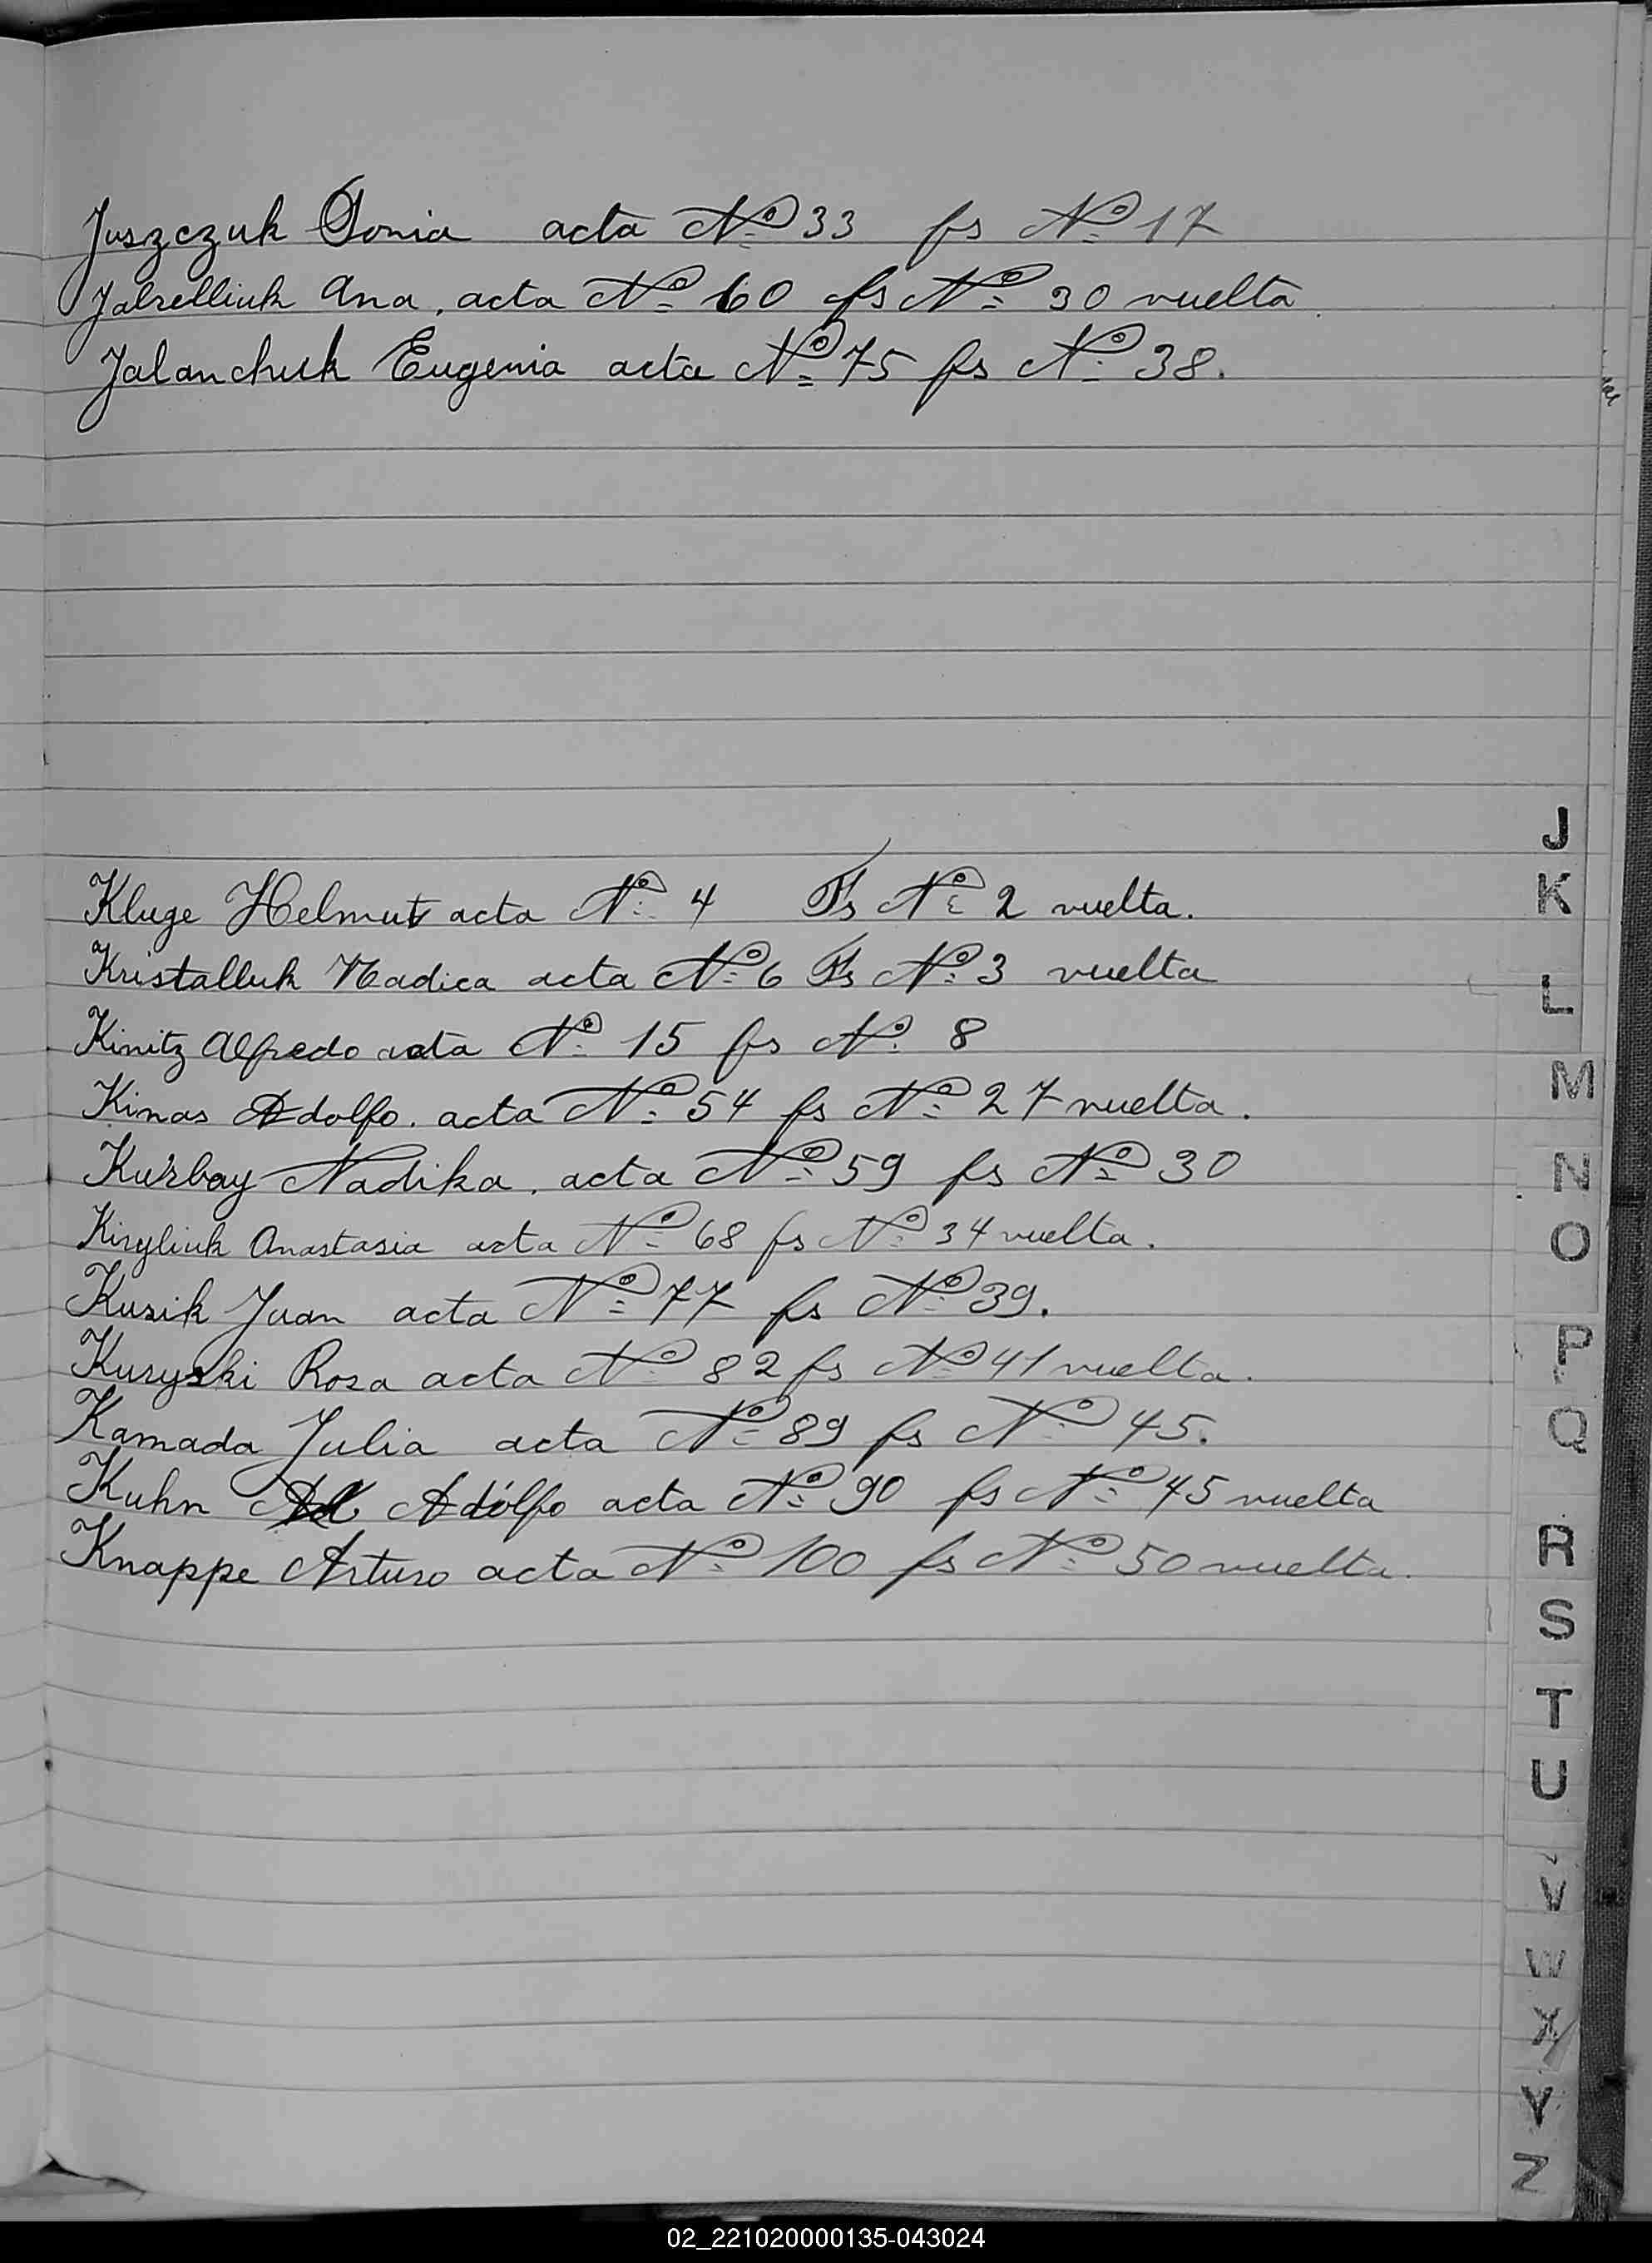 Juszczuk Sonia acta Nº 33 fs Nº 17
Jalrelliuk Ana, acta Nº 60 fs Nº 30 vuelta.
Jalanchuk Eugenia acta Nº 75 fs Nº 38.
J
K
Kluge Helmut acta Nº 4 Fs Nº 2 vuelta.
Kristalluk Nadica acta Nº 6 Fs Nº 3 vuelta
L
Kinitz Alfredo acta Nº 15 fs Nº 8
Kinas Adolfo. acta Nº 54 fs Nº 27 vuelta.
M
Kurbay Nadika. acta Nº 59 fs Nº 30
N
Kiryliuk Anastasia acta Nº 68 fs Nº 34 vuelta.
O
Kusik Juan acta Nº 77 fs Nº 39.
Kuryski Rosa acta Nº 82 fs Nº 41 vuelta.
P
Kamada Julia acta Nº 89 fs Nº 45.
Q
Kuhn Adolfo acta Nº 90 fs Nº 45 vuelta
Knappe Arturo acta Nº 100 fs Nº 50 vuelta.
R
S
T
U
V
W
X
Y
Z
02_221020000135-043024